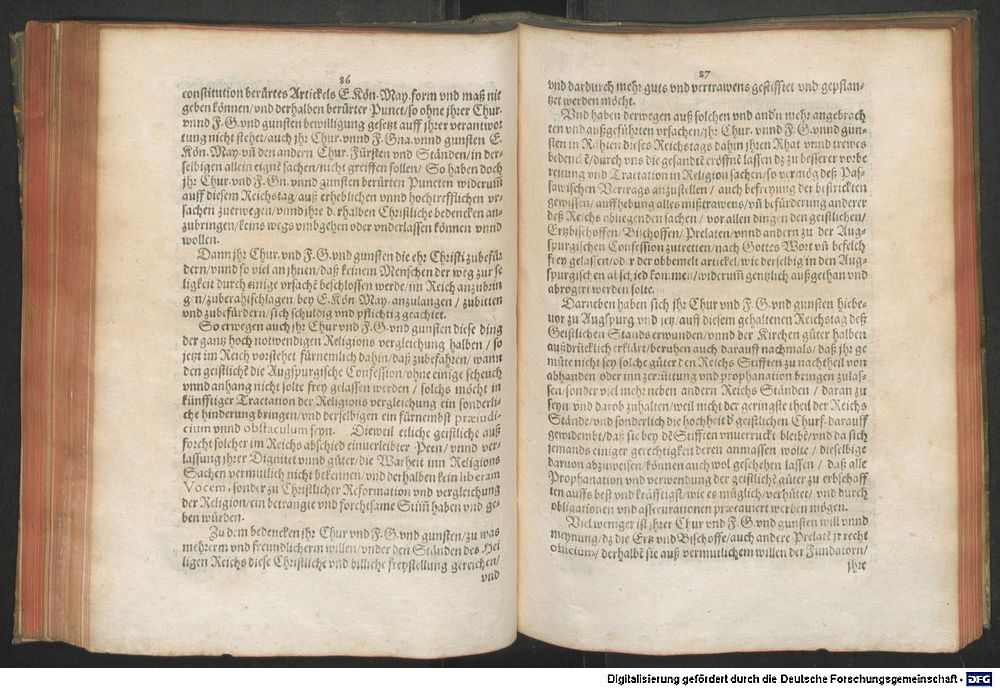 86
constitution berürtes Artickels E. Kön. May. form vnd maß nit
geben können/ vnd derhalben berürter Punct/ so ohne jhrer Chur.
vnnd F. G. vnd gunsten bewilligung gesetzt auff jhrer verantwor
tung nicht stehet/ auch jhr Chur. vnnd F. Gna. vnnd gunsten E.
Kön. May. vñ den andern Chur. Fürsten vnd Ständen/ in der-
selbigen allein eigne sachen/ nicht greiffen sollen/ So haben doch
jhr Chur. vnd F. Gn. vnnd gunsten berürten Puncten widerum̃
auff diesem Reichstag/ auß erheblichen vnnd hochtrefflichen vr-
sachen zuerwegen/ vnnd jhre derhalben Christliche bedencken an-
zubringen/ keins wegs vmbgehen oder vnderlassen können vnnd
wollen.
Dann jhr Chur. vnd F. G. vnd gunsten die ehr Christi zubefür
dern/ vnnd so viel an jhnen/ daß keinem Menschen der weg zur se
ligkeit durch einige vrsache beschlossen werde/ im Reich anzubrin
gen/ zuberahtschlagen bey E. Kön. May. anzulangen/ zubitten
vnd zubefürdern/ sich schuldig vnd pflichtig geachtet.
So erwegen auch jhr Chur vnd F. G. vnd gunsten diese ding
der gantz hoch notwendigen Religions vergleichung halben/ so
jetzt im Reich vorstehet fürnemlich dahin/ daß zubefahren/ wann
den geistlichẽ die Augspurgische Confession/ ohne einige scheuch
vnnd anhang nicht solte frey gelassen werden/ solchs möcht in
künfftiger Tractation der Religions vergleichung ein sonderli-
che hinderung bringen/ vnd derselbigen ein fürnembst præiudi-
cium vnnd obstaculum seyn. Dieweil etliche geistliche auß
forcht solcher im Reichs abschied einuerleibter Peen/ vnnd ver-
lassung jhrer Dignitet vnnd güter/ die Warheit inn Religions
Sachen vermutlich nicht bekennen/ vnd derhalben kein liberam
Vocem, sonder zu Christlicher Reformation vnd vergleichung
der Religion/ ein betrangte vnd forchtsame Stim̃ haben vnd ge-
ben würden.
Zu dem bedencken jhr Chur vnd F. G. vnd gunsten/ zu was
mehrerm vnd freundlicherm willen/ vnder den Ständen des Hei
ligen Reichs diese Christliche vnd billiche freystellung gereichen/
vnd
87
vnd dardurch mehr guts vnd vertrawens gestifftet vnd gepflan-
tzet werden möcht.
Vnd haben derwegen auß solchen vnd andñ mehr angebrach
ten vnd außgeführten vrsachen/ jhr Chur. vnnd F. G. vnnd gun-
sten in Rähten dieses Reichstags dahin jhren Rhat vnnd trewes
bedencẽ/ durch vns die gesandtẽ eröffnẽ lassen dz zu besserer vorbe
reitung vnd Tractation in Religion sachen/ so vermög deß Pas-
sawischen Vertrags anzustellen/ auch befreyung der bestrickten
gewissen/ auffhebung alles mißtrawens/ vñ befürderung anderer
deß Reichs obliegenden sachen/ vor allen dingen den geistlichen/
Ertzbischoffen/ Bischoffen/ Prelaten/ vnnd andern zu der Aug-
spurgischen Confession zutretten/ nach Gottes Wort vñ befelch
frey gelassen/ oder der obbemelt artickel/ wie derselbig in den Aug-
spurgischen abschied kommen/ widerum̃ gentzlich außgethan vnd
abrogirt werden solte.
Darneben haben sich jhr Chur vnd F. G. vnd gunsten hiebe-
uor zu Augspurg vnd jetzt auff diesem gehaltenen Reichstag deß
Geistlichen Stands erwunden/ vnnd der Kirchen güter halben
außdrücklich erklärt/ beruhen auch darauff nachmals/ daß jhr ge
müte nicht sey solche güter den Reichs Stifften zu nachtheil von
abhanden oder inn zerrütung vnd prophanation bringen zulas-
sen/ sonder viel mehr neben andern Reichs Ständen/ daran zu
seyn vnd darob zuhalten/ weil nicht der geringste theil der Reichs
Stände/ vnd sonderlich die hochheit ď geistlichen Churf. darauff
gewidembt/ daß sie bey dẽ Stifften vnuerruckt bleibẽ/ vnd da sich
jemands einiger gerechtigkeit deren anmassen wolte/ dieselbige
daruon abzuweisen/ können auch wol geschehen lassen/ daß alle
Prophanation vnd verwendung der geistlichẽ güter zu erbschaff
ten auffs best vnd kräfftigst/ wie es müglich/ verhütet/ vnd durch
obligationen vnd assecurationen præcauiert werden mögen.
Viel weniger ist jhrer Chur vnd F. G. vnd gunsten will vnnd
meynung/ dz die Ertz vnd Bischoffe/ auch andere Prelatẽ je recht
officium/ derhalbẽ sie auß vermutlichem willen der Fundatorn/
jhre
Digitalisierung gefördert durch die Deutsche Forschungsgemeinschaft - DFG